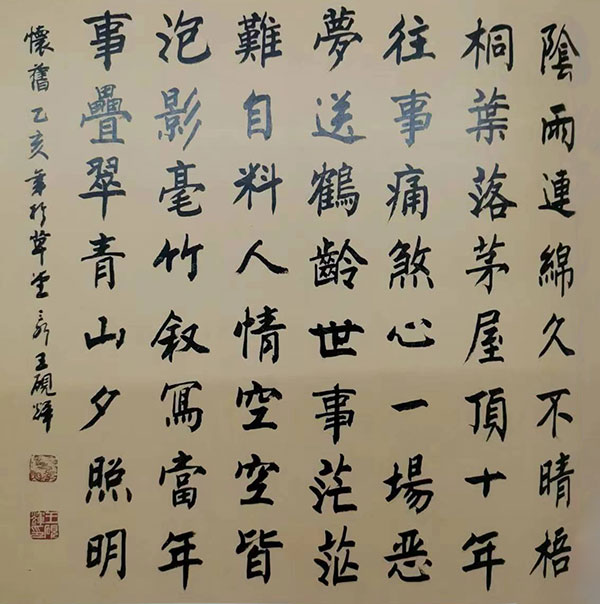 陰雨連綿久不晴梧
桐葉落茅屋頂十年
往事痛煞心一場惡
夢送鶴齡世事茫茫
難自料人情空空皆
泡影毫竹叙寫當年
事疊翠青山夕照明
懷舊乙亥年於草堂王硯輝